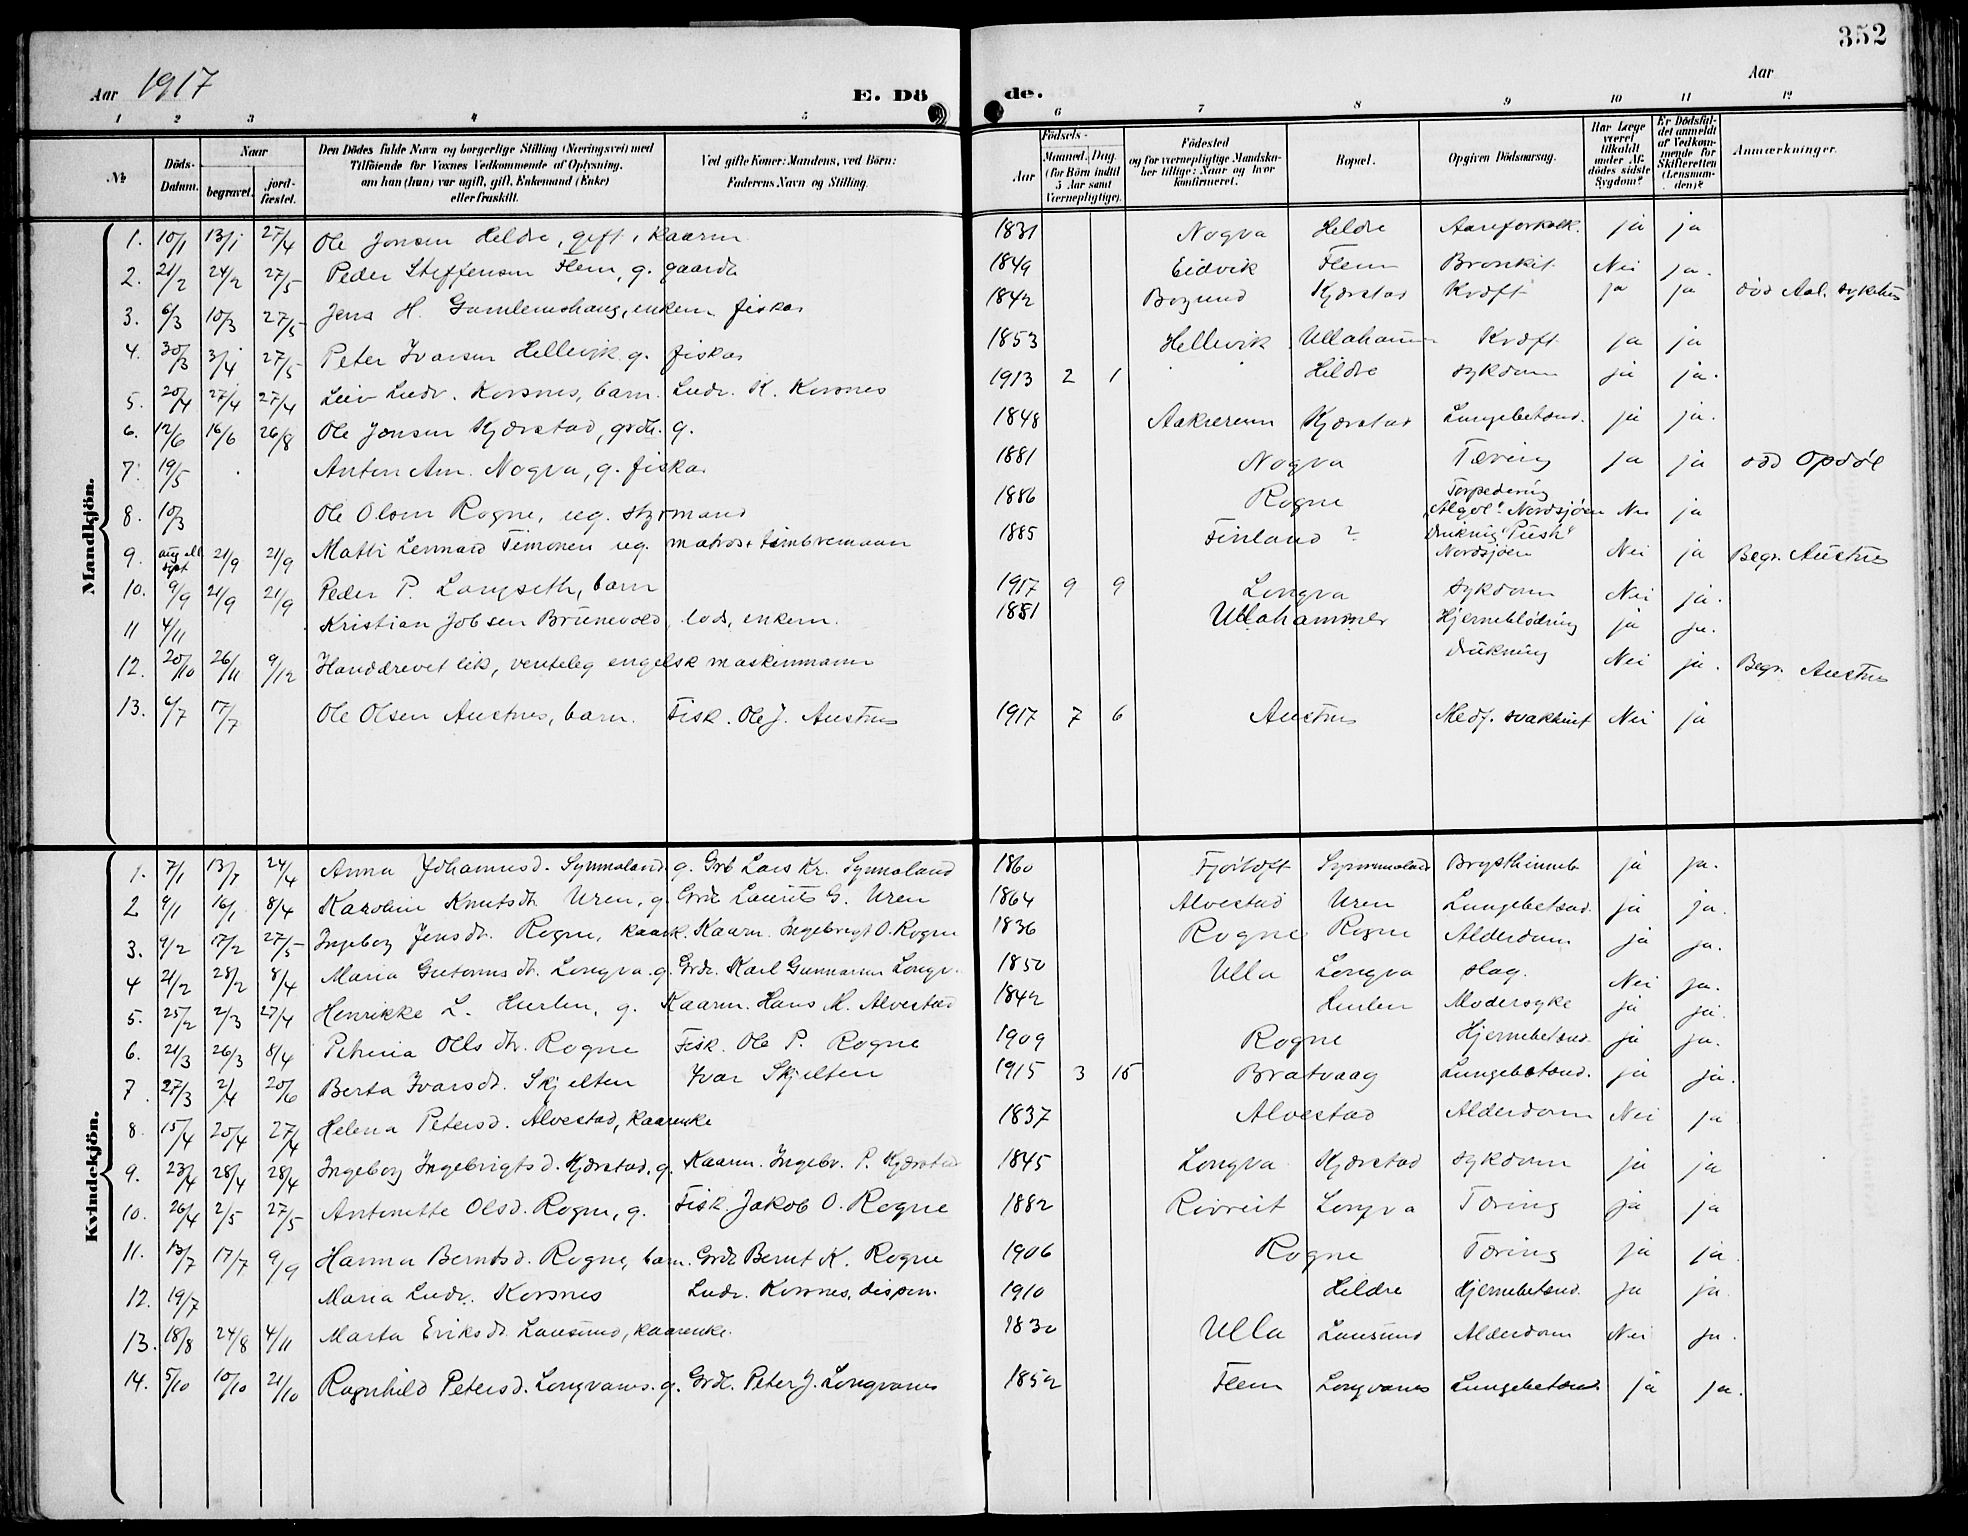 352
Aar 1917 E. Dö de. Aar
1 2 3 4 5 6 7 8 9 10 11 12
№ Döds-Datum. Naar begravet. jordfæstet. Den Dödes fulde Navn og borgerlige Stilling (Næringsvei) med Tilföiende for Voxnes Vedkommende af Oplysning, om han (hun) var ugift, gift, Enkemand (Enke) eller fraskilt. Ved gifte Koner: Mandens, ved Börn: Faderens Navn og Stilling. Födsels- Aar Maaned. Dag. (for Börn indtil 5 Aar samt Værnepligtige). Födested og for værnepligtige Mandskaber tillige: Naar og hvor konfirmeret. Bopæl. Opgiven Dödsaarsag. Har Læge været tilkaldt under Afdödes sidste Sygdom? Er Dödsfaldet anmeldt af Vedkommende for Skifteretten (Lensmanden)? Anmærkninger.
Mandkjön.
1. 10/1 13/1 27/4 Ole Jonsen Hildre, gift, kaarm. 1831 Nogva Hildre Aareforkalk. ja ja
2. 21/2 24/2 27/5 Peder Steffensen Flem, g. gaardb. 1849 Eidvik Flem Bronkit. Nei ja.
3. 6/3 10/3 27/5 Jens H. Gamlemshaug, enkem. fiskar 1842 Kjærstad Kræft ja ja død Aal. sykehus
4. 30/3 3/4 27/5 Peter Ivarsen Hellevik g. fiskar 1853 Hellevik Ullahamm Kræft ja ja
5. 20/4 27/4 27/4 Leiv Ludv. Korsnes, barn. Ludv. K. Korsnes 1913 2 1 Hildre sykdom ja ja.
6. 12/6 16/6 26/8 Ole Jonsen Kjærstad, grdb. g. 1848 Kjærstad Lungebetænd. ja ja.
7. 19/5 Anton Am. Nogva, g. fiskar 1881 Nogva Tæring ja ja død Opdøl
8. 10/3 Ole Olsen Rogne, ug. styrmand 1886 Rogne Torpedering "Algol". Nordsjøen Nei ja
9. aug ell. sept 21/9 21/9 Matti Lennard Timonen ug. matros + timbremann 1885 Finland ? Drukning "Push" Nordsjøen Nei ja Begr. Austnes
10. 9/9 21/9 21/9 Peder P. Langseth, barn 1917 9 9 Longva sykdom Nei ja.
11 4/11 Kristian Jobsen Brunevold, lods, enkem. 1851 Ullahammer Hjerneblødning ja ja.
12. 20/10 26/11 9/12 Handdrevet lik, venteleg engelsk maskinmann Drukning Nei ja. Begr. Austnes
13. 6/7 17/7 Ole Olsen Austnes, barn. Fisk. Ole J. Austnes 1917 7 6 Austnes Medf. svakheit Nei ja
Kvindekjön.
1. 7/1 13/1 24/4 Anna Johannesd. Synnaland g. Grb Lars Kr. Synnaland 1860 Fjørtoft Synnaland Brysthinneb ja ja.
2 9/1 16/1 8/4 Karoline Knutsdtr Uren, g. Grdb Laurits G. Uren 1864 Alvestad Uren Lungebetænd. ja ja.
3. 9/2 17/2 27/5 Ingeborg Jensdtr. Rogne, kaark. Kaarm. Ingebregt O. Rogne 1836 Rogne Rogne Alderdom ja ja.
4 21/2 28/2 8/4 Maria Guttormsdtr. Longva g. Grdb. Karl Gunnarsen Longv. 1850 Ulla Longva slag. Nei ja.
5. 25/2 2/3 27/4 Henrikke L. Hurlen, g. Kaarm. Hans M. Alvestad 1842 Hurlen Modersyke ja ja.
6. 21/3 26/3 8/4 Petrina Olsdtr. Rogne Fisk. Ole P. Rogne 1909 Rogne Hjernebetænd. ja ja.
7. 27/3 2/4 20/6 Berta Ivarsdtr. Skjelten Ivar Skjelten 1915 3 15 Bratvaag Lungebetænd. ja ja.
8. 15/4 20/4 27/4 Helena Petersd. Alvestad, kaarenke 1837 Alvestad Alderdom Nei ja
9. 23/4 28/4 28/4 Ingeborg Ingebrigtsd. Kjærstad, g. Kaarm. Ingebr. P. Kjærstad 1845 Longva Kjærstad sykdom ja ja
10. 26/4 2/5 27/5 Antonette Olsd. Rogne, g. Fisk. Jakob O. Rogne 1882 Longva Tæring ja ja
11. 13/7 17/7 9/9 Hanna Berntsd. Rogne, barn. Grdb Bernt K. Rogne 1906 Rogne Tæring ja ja.
12. 19/7 Maria Ludv. Korsnes Ludv. Korsnes, dispon. 1910 Hildre Hjernebetænd. ja ja.
13. 18/8 24/8 4/11 Marta Eriksdtr. Lausund, kaarenke. 1830 Ulla Lausund Alderdom Nei ja.
14. 5/10 10/10 21/10 Ragnhild Petersd. Longvanes. g. Grdb. Peter J. Longvanes 1852 Flem Longvanes Lungebetænd ja ja.